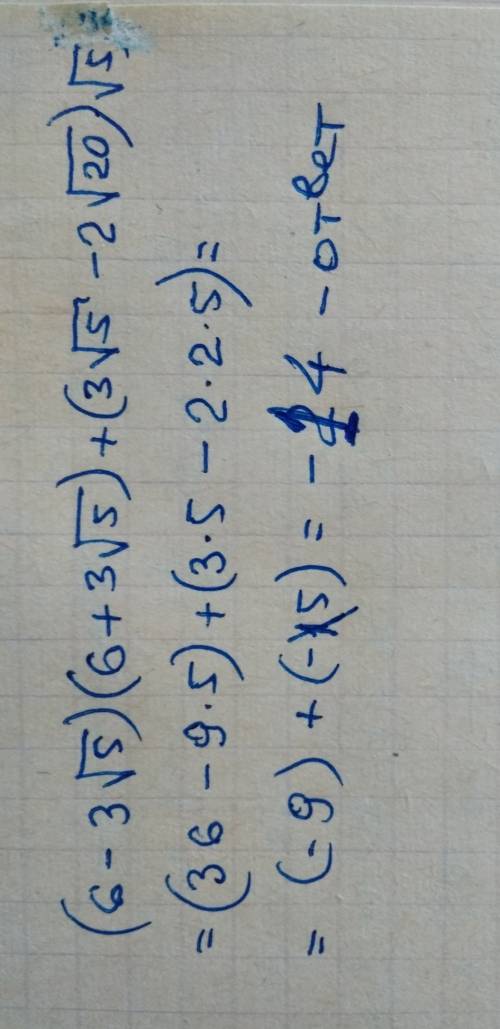 (6-3√5)(6+3√5)+(3√5-2√20)√5
=(36-9·5)+(3·5-2·2·5)=
=(-9)+(-5)=-14-ответ